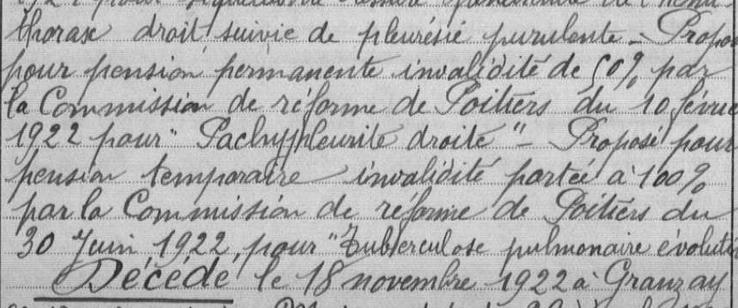 pour séquelles de
thorax droit suivie de pleurésie purulente - Propo
pour pension permanente invalidité de 50% par
la Commission de réforme de Poitiers du 10 févrie
1922 pour "Pachypleurite droite" - Proposé pour
pension temporaire invalidité portée à 100%
par la Commission de réforme de Poitiers du
30 Juin 1922, pour "Tuberculose pulmonaire évoluti
Décédé le 18 novembre 1922 à Granzay